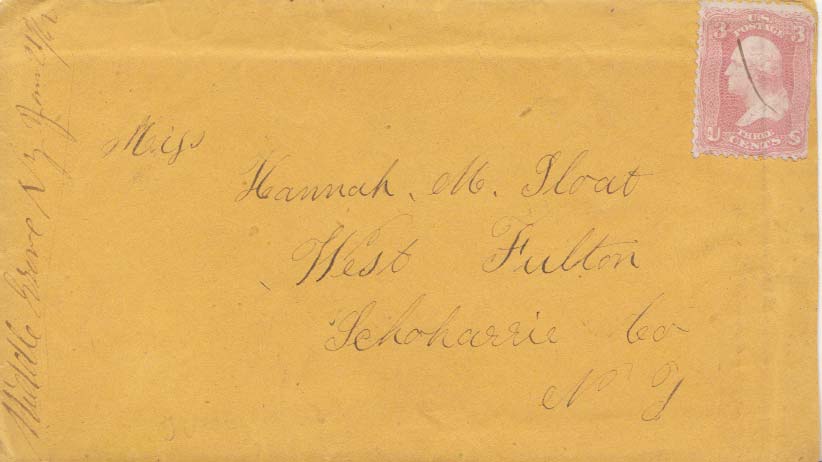 Middle Grove N Y Jan 21/62
Miss
Hannah. M. Sloat
West Fulton
Schoharrie Co
N Y
3 U.S. POSTAGE 3
U THREE CENTS S